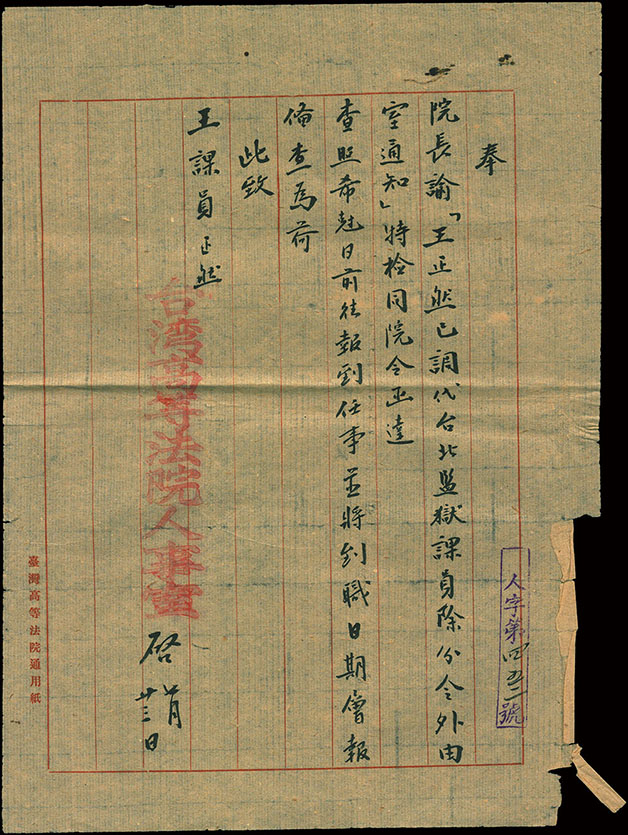 人字第四五二號
奉
院長諭「王正然已調代台北監獄課員除分令外由
室通知」特檢同院令函達
查照希尅日前往報到任事並將到職日期報
俻查為荷
此致
王課員正然
台湾高等法院人事室
啓
月廿三日
臺灣高等法院通用紙